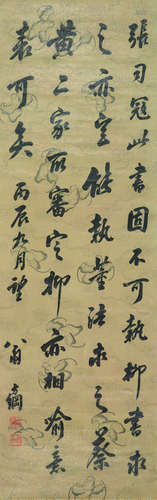 張司寇此書固不可執柳書求
之亦豈能執董法求之蔡
黃二家所審定柳亦相喻意
表可矣丙辰九月望翁方綱